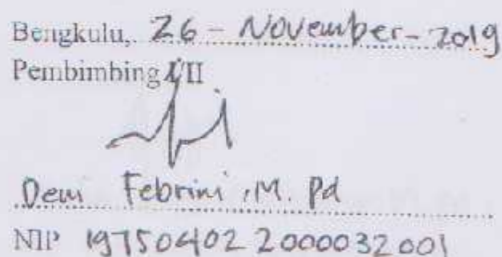 Bengkulu, 26 - November - 2019
Pembimbing I/II
Dewi Febrini, M. Pd
NIP 19750402 2000032001